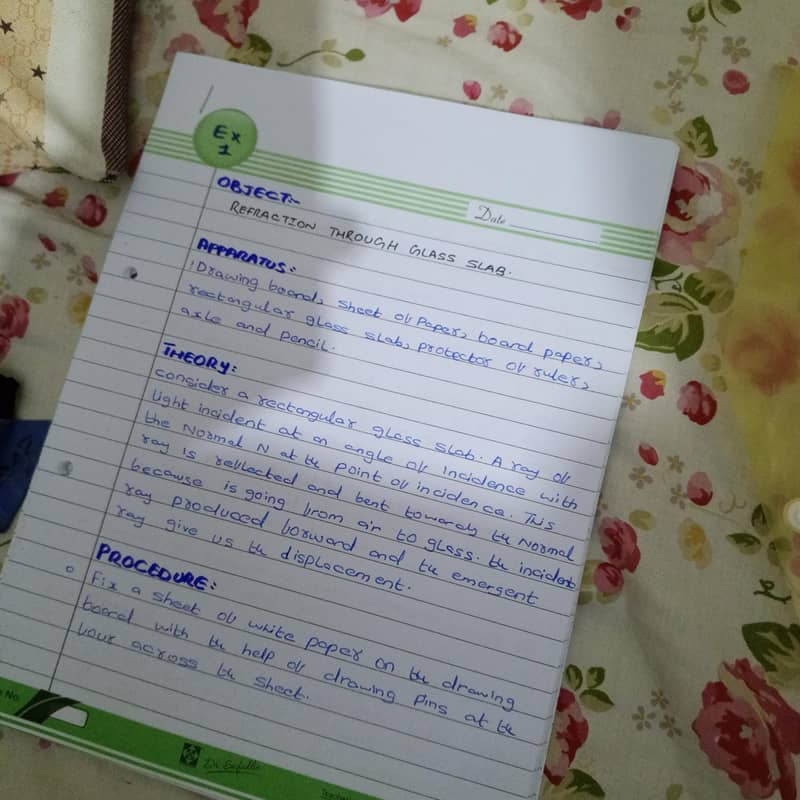 Ex
1
Date
OBJECT:-
REFRACTION THROUGH GLASS SLAB.
APPARATUS:
Drawing board, sheet of Paper, board paper,
rectangular glass slab, protector of ruler,
axle and pencil.
THEORY:
consider a rectangular glass slab. A ray of
light incident at an angle of incidence with
the Normal N at the point of incidence. This
ray is reflected and bent towards the Normal
because is going from air to glass. the incident
ray produced forward and the emergent
ray give us the displacement.
PROCEDURE:
Fix a sheet of white paper on the drawing
board with the help of drawing pins at the
four across the sheet.
No.